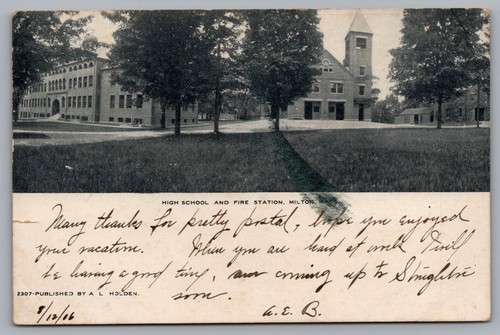 HIGH SCHOOL AND FIRE STATION, MILTON,
Many thanks for pretty postal, hope you enjoyed
your vacation. When you are hard at work I will
be having a good time, am coming up to
2307-PUBLISHED BY A. L. HOLDEN. soon.
9/12/06 A. E. B.